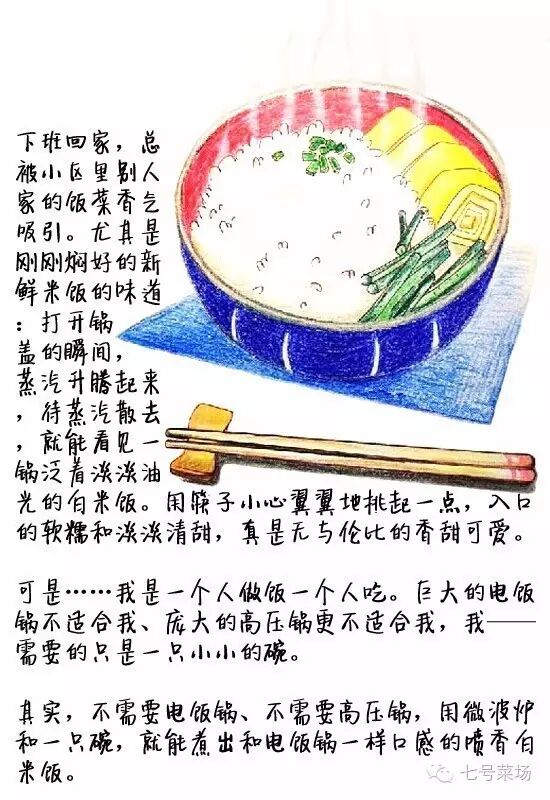 下班回家，总
被小区里别人
家的饭菜香气
吸引。尤其是
刚刚焖好的新
鲜米饭的味道
：打开锅
盖的瞬间，
蒸汽升腾起来
，待蒸汽散去
，就能看见一
锅泛着淡淡油
光的白米饭。用筷子小心翼翼地挑起一点，入口
的软糯和淡淡清甜，真是无与伦比的香甜可爱。
可是……我是一个人做饭一个人吃。巨大的电饭
锅不适合我、庞大的高压锅更不适合我，我——
需要的只是一只小小的碗。
其实，不需要电饭锅、不需要高压锅，用微波炉
和一只碗，就能煮出和电饭锅一样口感的喷香白
米饭。
七号菜场